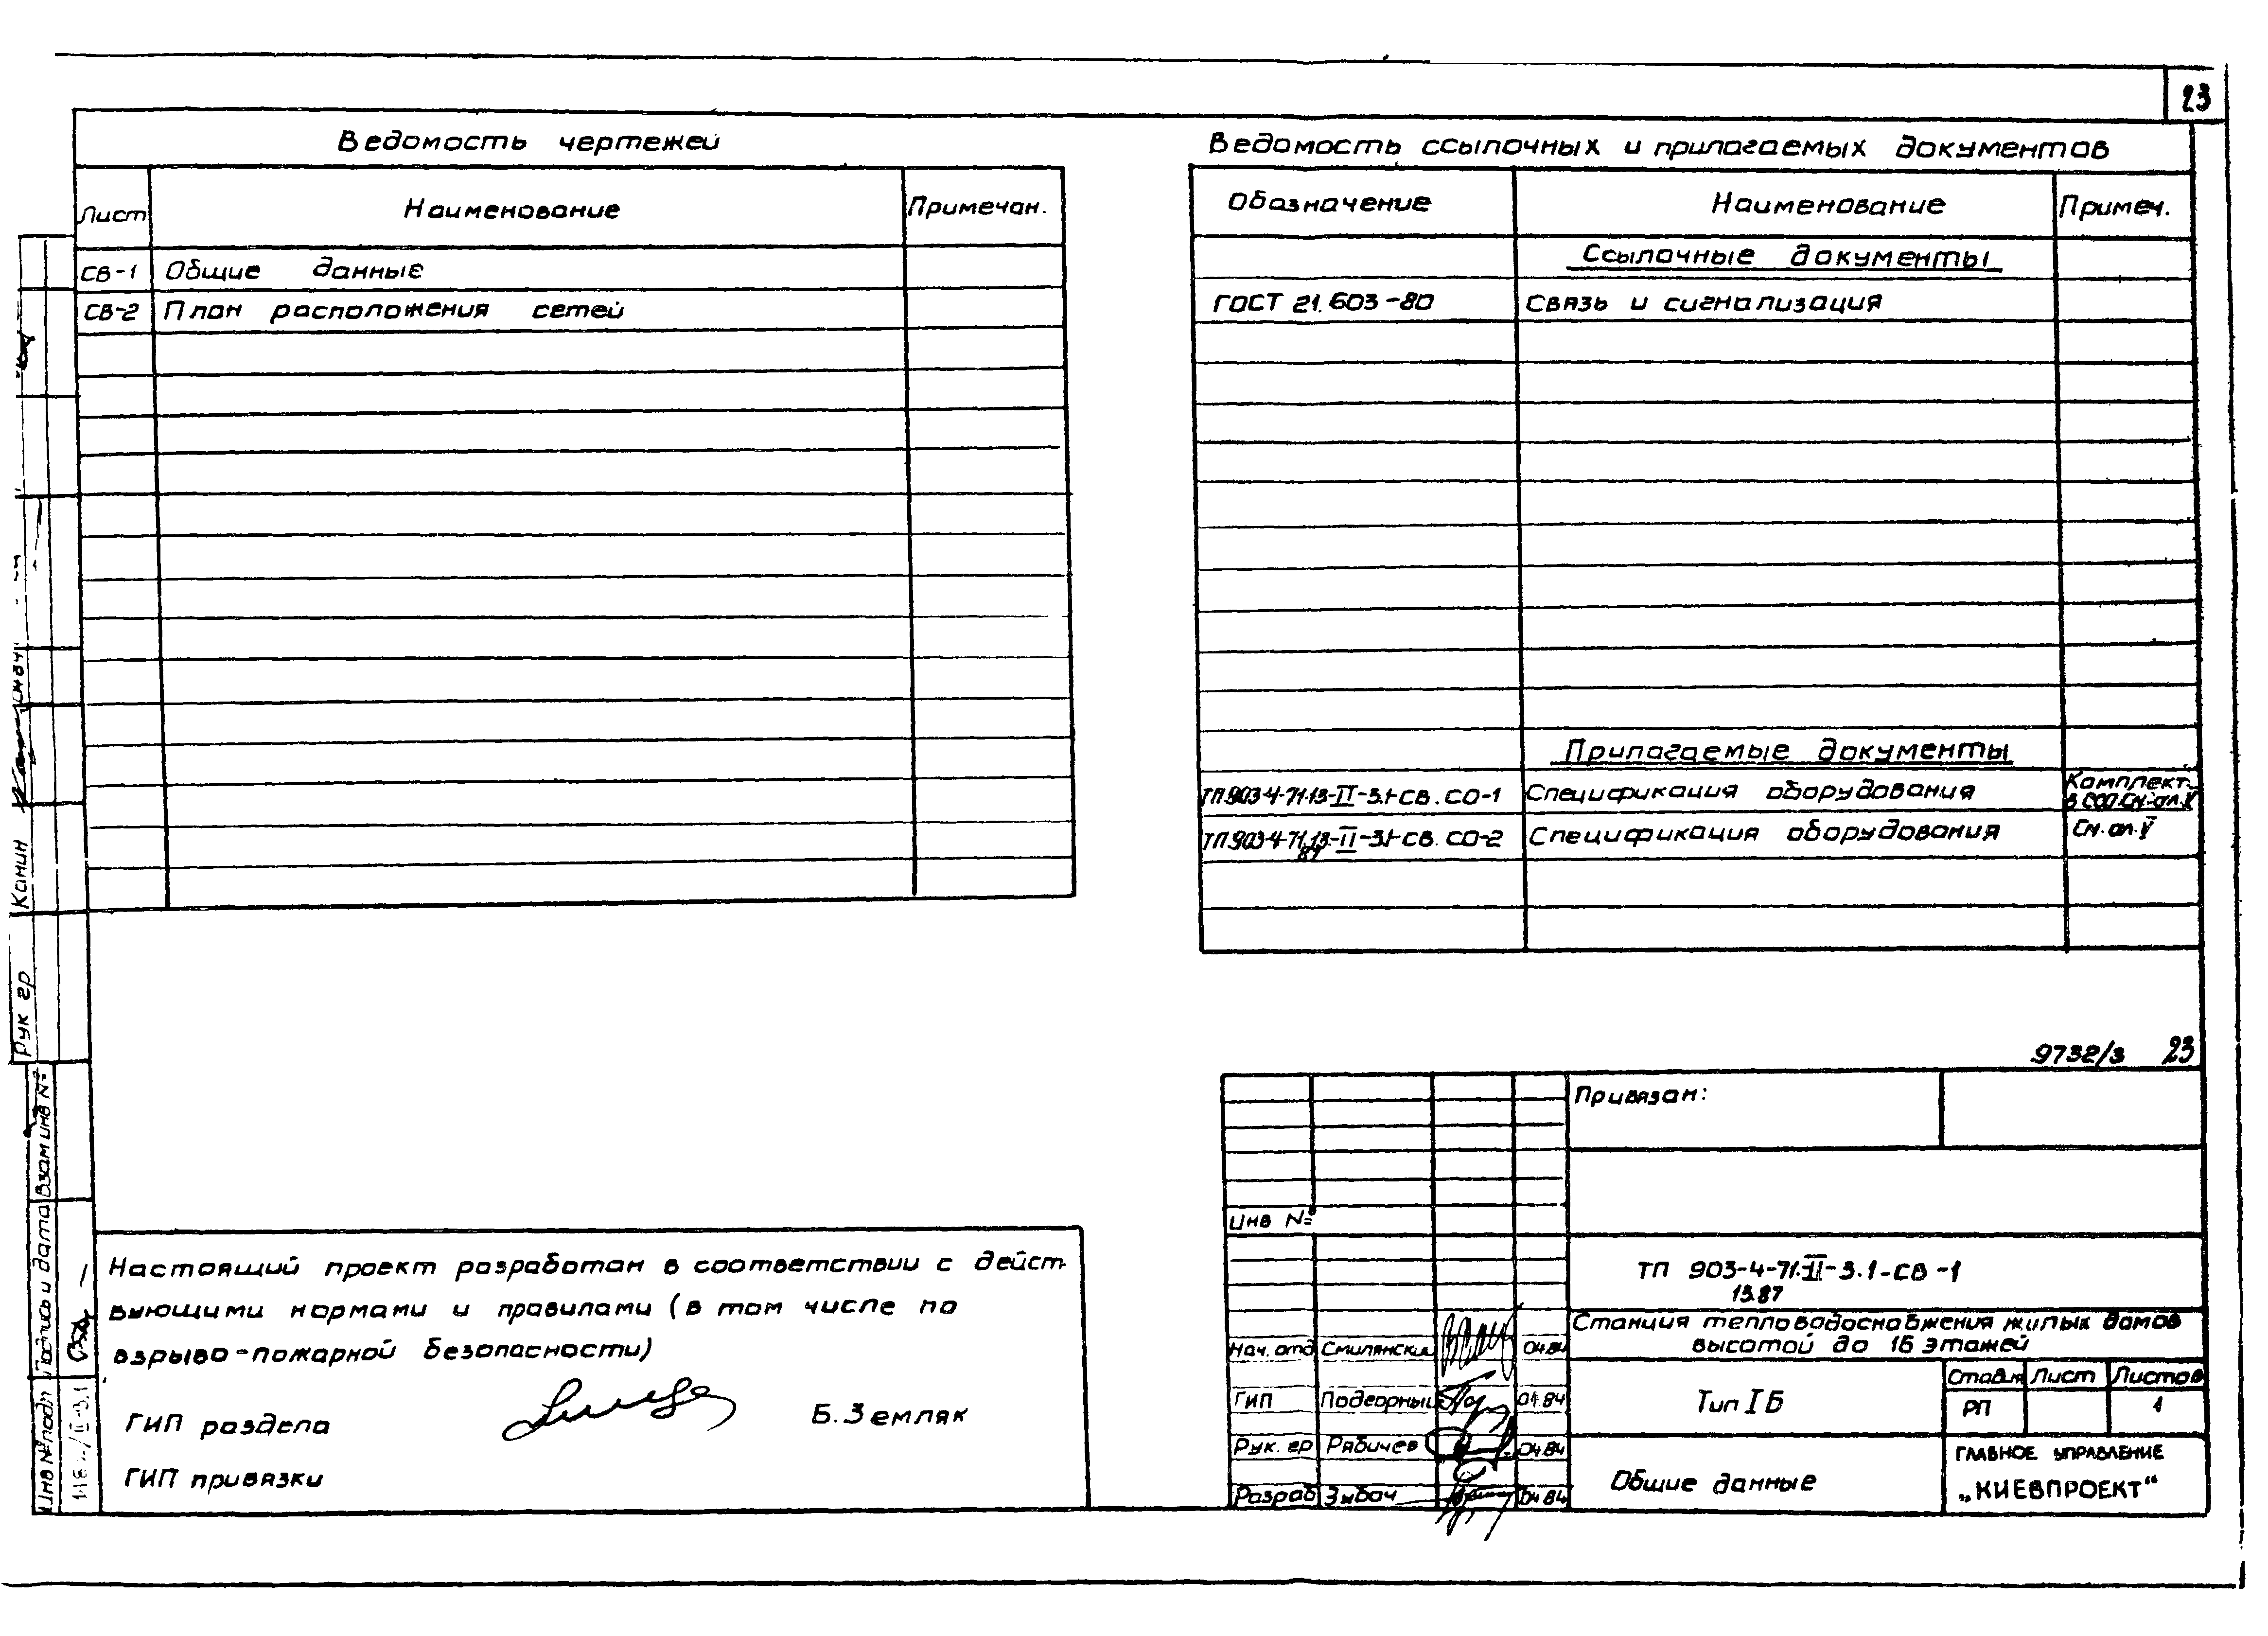 23
Ведомость чертежей
Лист Наименование Примечан.
СВ-1 Общие данные
СВ-2 План расположения сетей
Ведомость ссылочных и прилагаемых документов
Обозначение Наименование Примеч.
Ссылочные документы
ГОСТ 21.603-80 Связь и сигнализация
Прилагаемые документы
ТП.903-4-71.13-II-3.1-СВ.СО-1 Спецификация оборудования Комплект.
см. ал. V
ТП.903-4-71.13-II-3.1-СВ.СО-2 Спецификация оборудования См. ал. V
87
9732/3 23
Привязан:
Инв №
ТП 903-4-71.II-3.1-СВ-1
13.87
Станция тепловодоснабжения жилых домов
высотой до 16 этажей
Нач. отд Смилянский 04.84
ГИП Подгорный 04.84
Рук. гр Рябичев 04.84
Разраб Зыбач 04.84
Тип I Б
Стадия Лист Листов
РП 1
Общие данные
ГЛАВНОЕ УПРАВЛЕНИЕ
„КИЕВПРОЕКТ“
Настоящий проект разработан в соответствии с дейст-
вующими нормами и правилами (в том числе по
взрыво-пожарной безопасности)
ГИП раздела Б. Земляк
ГИП привязки
Рук гр Канин 04.84
Взам инв №
Подпись и дата
Инв № подл